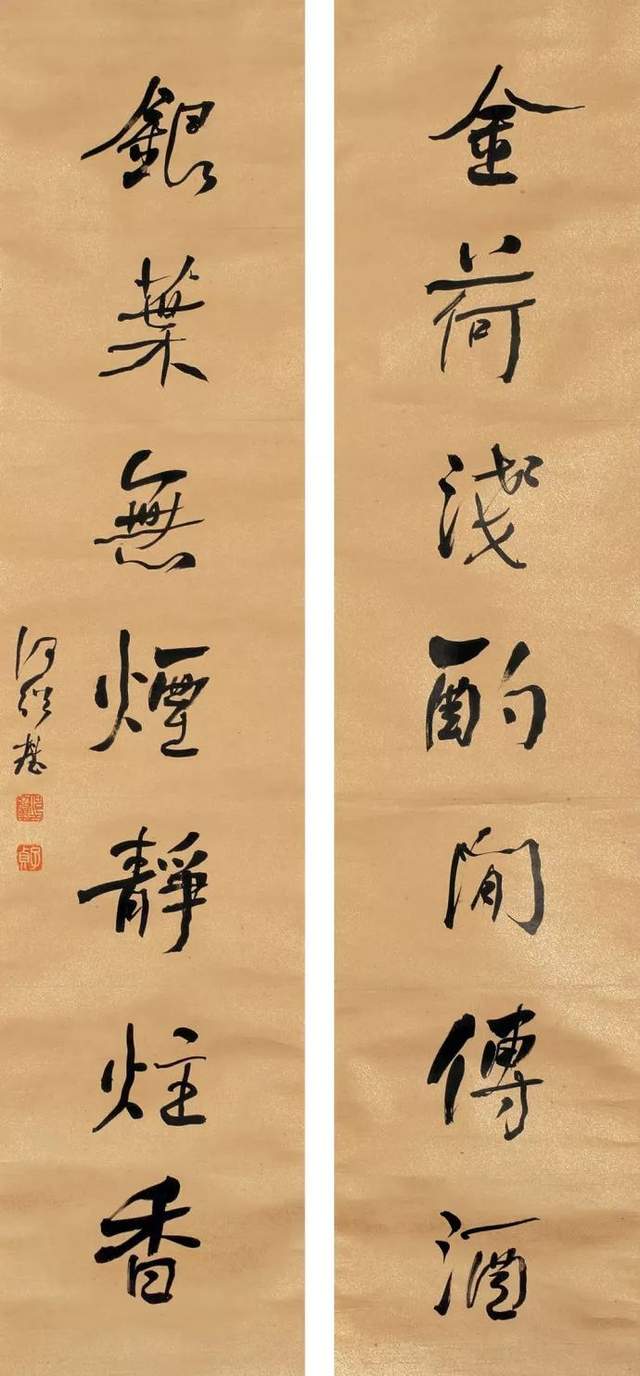 金荷淺酌閒傳酒
銀葉無煙靜炷香
何紹基
子貞